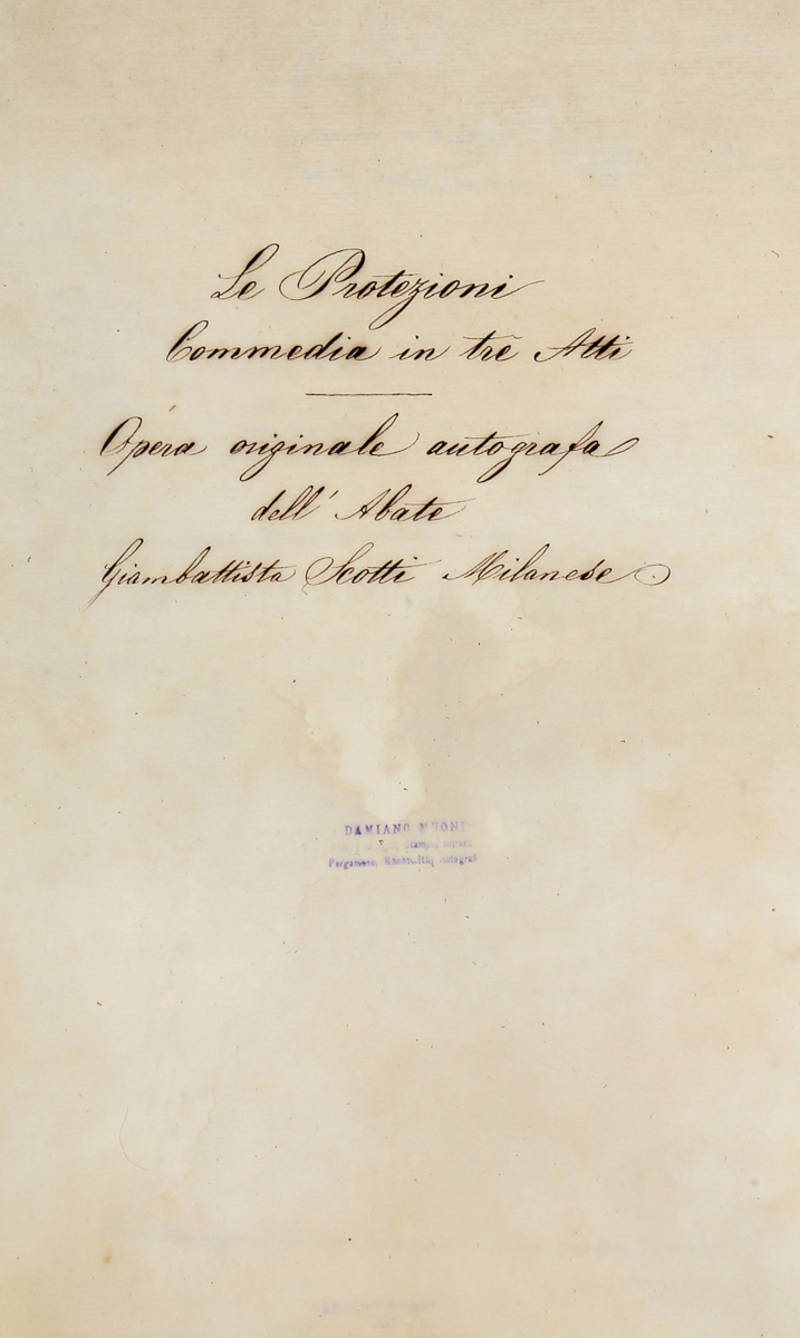 Le Protezioni
Commedia in trè Atti
Opera originale autografa
dell' Abate
Giambattista Scotti Milanese
DAMIANO MUONI